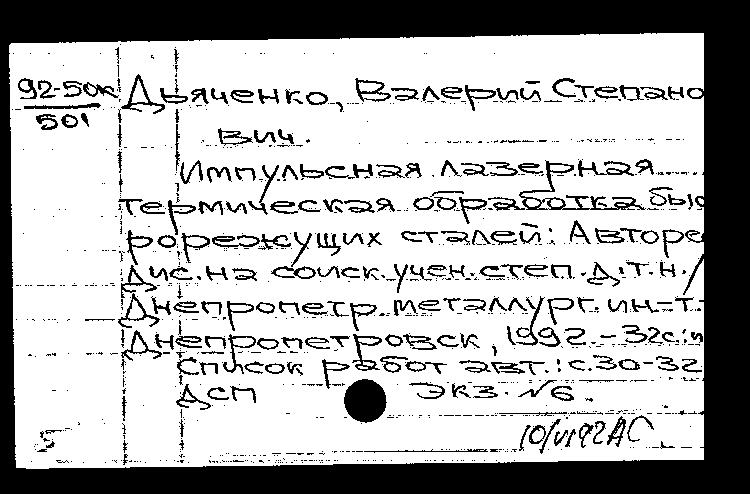 92-50к
501
Дьяченко, Валерий Степано
вич.
Импульсная лазерная
термическая обработка быс
рорежущих сталей: Авторе
дис. на соиск. учен. степ. д.т.н./
Днепропетр. металлург. ин-т.-
Днепропетровск, 1992.-32с.:и
Список работ авт.: с.30-32
ДСП Экз. №6.
5
10/VI92АС.